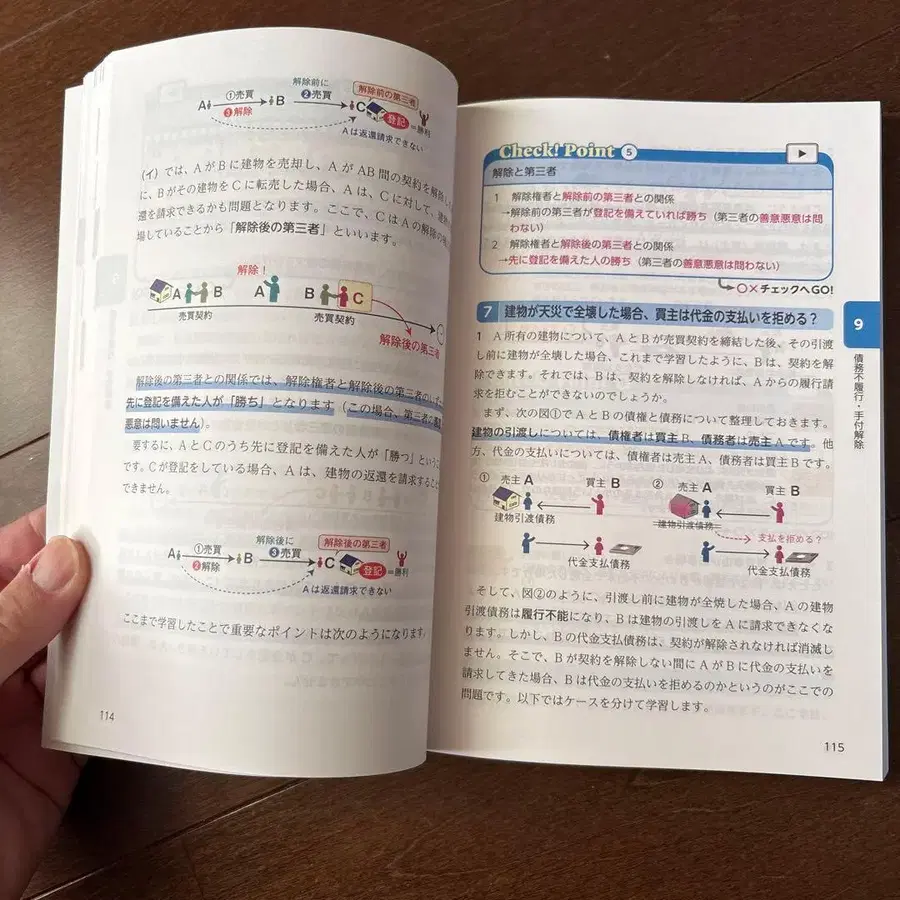 A ①売買 B 解除前に ②売買 C 登記 =勝利
③解除
解除前の第三者
Aは返還請求できない
(イ) では、AがBに建物を売却し、AがAB間の契約を解除し
に、Bがその建物をCに転売した場合、Aは、Cに対して、建物
還を請求できるかも問題となります。ここで、CはAの解除の
場していることから「解除後の第三者」といいます。
解除!
A B A B C
売買契約 売買契約
解除後の第三者
解除後の第三者との関係では、解除権者と解除後の第三者の
先に登記を備えた人が「勝ち」となります(この場合、第三者の
悪意は問いません)。
要するに、AとCのうち先に登記を備えた人が「勝つ」という
です。Cが登記をしている場合、Aは、建物の返還を請求すること
できません。
A ①売買 B 解除後に ③売買 C 登記 =勝利
②解除
解除後の第三者
Aは返還請求できない
ここまで学習したことで重要なポイントは次のようになります。
114
Check! Point 5
解除と第三者
1 解除権者と解除前の第三者との関係
→解除前の第三者が登記を備えていれば勝ち(第三者の善意悪意は問
わない)
2 解除権者と解除後の第三者との関係
→先に登記を備えた人の勝ち(第三者の善意悪意は問わない)
〇×チェックへGO!
7 建物が天災で全壊した場合、買主は代金の支払いを拒める?
1 A所有の建物について、AとBが売買契約を締結した後、その引渡
し前に建物が全壊した場合、これまで学習したように、Bは、契約を解
除できます。それでは、Bは、契約を解除しなければ、Aからの履行請
求を拒むことができないのでしょうか。
まず、次の図①でAとBの債権と債務について整理しておきます。
建物の引渡しについては、債権者は買主B、債務者は売主Aです。他
方、代金の支払いについては、債権者は売主A、債務者は買主Bです。
① 売主A 買主B
建物引渡債務
代金支払債務
② 売主A 買主B
建物引渡債務
支払を拒める?
代金支払債務
そして、図②のように、引渡し前に建物が全焼した場合、Aの建物
引渡債務は履行不能になり、Bは建物の引渡しをAに請求できなくな
ります。しかし、Bの代金支払債務は、契約が解除されなければ消滅し
ません。そこで、Bが契約を解除しない間にAがBに代金の支払いを
請求してきた場合、Bは代金の支払いを拒めるのかというのがここでの
問題です。以下ではケースを分けて学習します。
9
債務不履行・手付解除
115